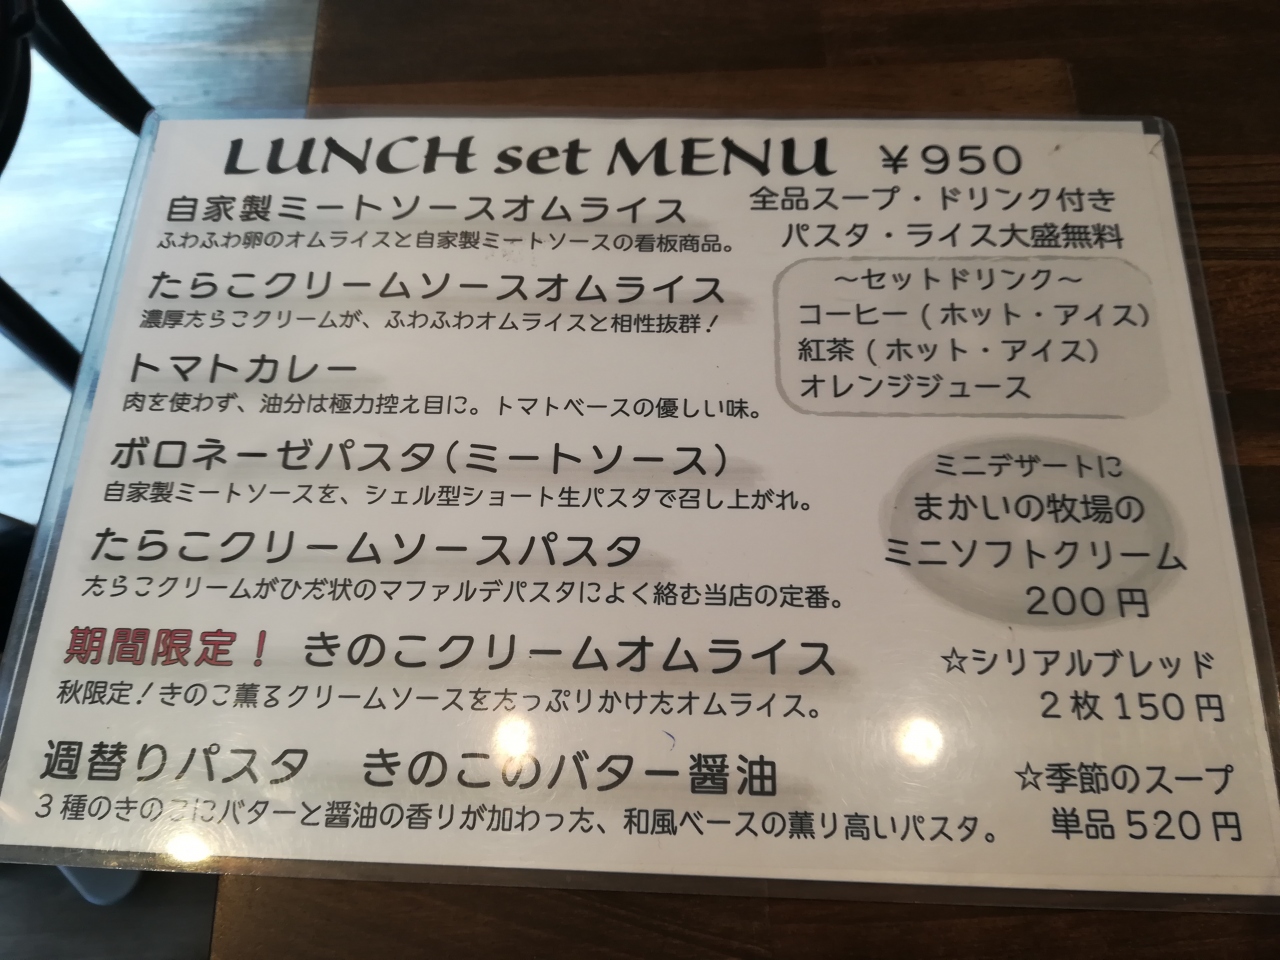 LUNCH set MENU ￥950
全品スープ・ドリンク付き
パスタ・ライス大盛無料
自家製ミートソースオムライス
ふわふわ卵のオムライスと自家製ミートソースの看板商品。
たらこクリームソースオムライス
濃厚たらこクリームが、ふわふわオムライスと相性抜群！
トマトカレー
肉を使わず、油分は極力控え目に。トマトベースの優しい味。
ボロネーゼパスタ(ミートソース)
自家製ミートソースを、シェル型ショート生パスタで召し上がれ。
たらこクリームソースパスタ
たらこクリームがひだ状のマファルデパスタによく絡む当店の定番。
期間限定！ きのこクリームオムライス
秋限定！きのこ薫るクリームソースをたっぷりかけたオムライス。
週替りパスタ きのこのバター醤油
３種のきのこにバターと醤油の香りが加わった、和風ベースの薫り高いパスタ。
～セットドリンク～
コーヒー（ホット・アイス）
紅茶（ホット・アイス）
オレンジジュース
ミニデザートに
まかいの牧場の
ミニソフトクリーム
200円
☆シリアルブレッド
２枚150円
☆季節のスープ
単品520円